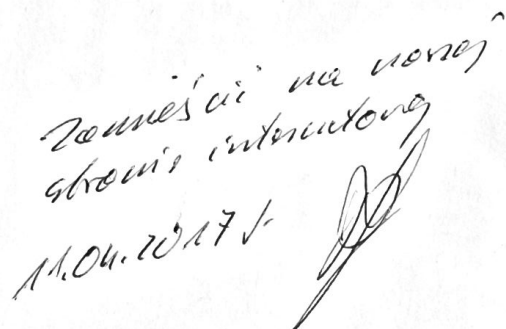 Zamieścić na naszej
stronie internetowej
11.04.2017 r.